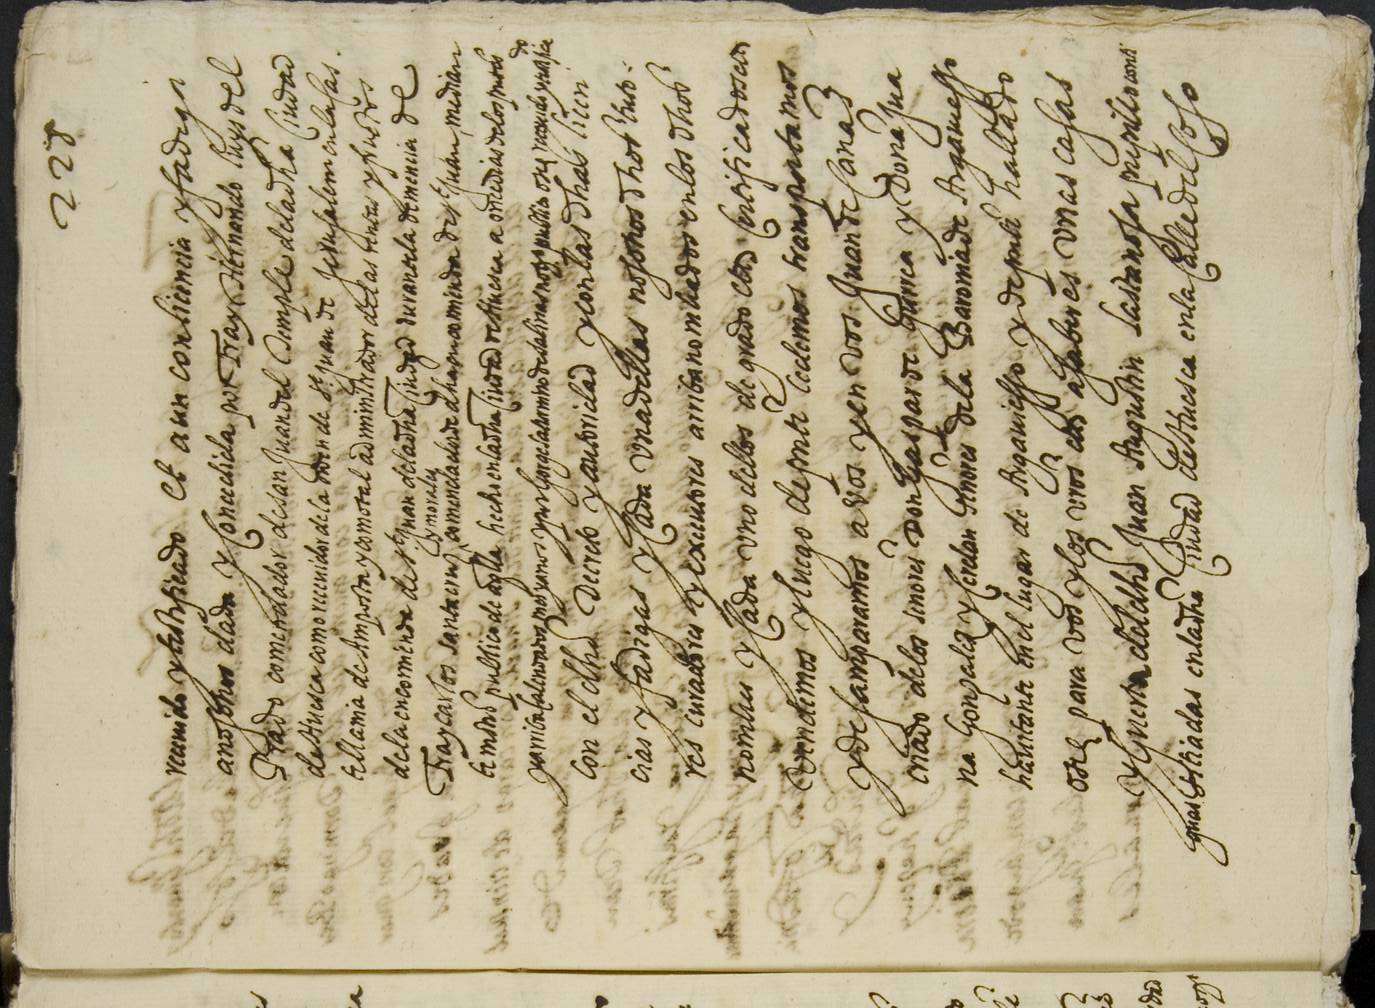 228
recivido y testificado et aun con licencia y fadiga
a nosotros dada y concedida por fray Hernando Ruys del
Prado comendador de san Juan del Temple de la dha Ciudad
de Huesca como recividor de la orden de st Juan de Jerusalem en la Cas
tellania de Amposta y como tal administrador de las rentas y frutos
de la encomienda de st Juan de la dha Ciudad durante la demencia de
fray carlos santa cruz y morales comendador de dha encomienda de st Juan median
te instro publico de aqlla hecho en la dha Ciudad de Huesca a
y por
con el dho Decreto y autoridad y con las dhas licen
cias y fadigas y Cada una dellas nosotros dhos tuto
res curadores y executores arriba nombrados en los dhos
nombres y Cada uno dellos de grado etc Certificados etc
Vendemos y luego de pnte Cedemos transportamos
y desamparamos a vos y en vos Juan de Conas
criado de los señores Don Gaspar de Gurrea y Dona Jua
na Gonzalez y Cerdan señores de la Baronia de Argavieso
havitante en el lugar de Argavieso y de pnte hallado
etc para vos y los vros etc A saber es unas casas
y Guerta del dho Juan Augustin Lastanosa pupilo conti
guas sitiadas en la dha Ciudad de Huesca en la Calle del Coso